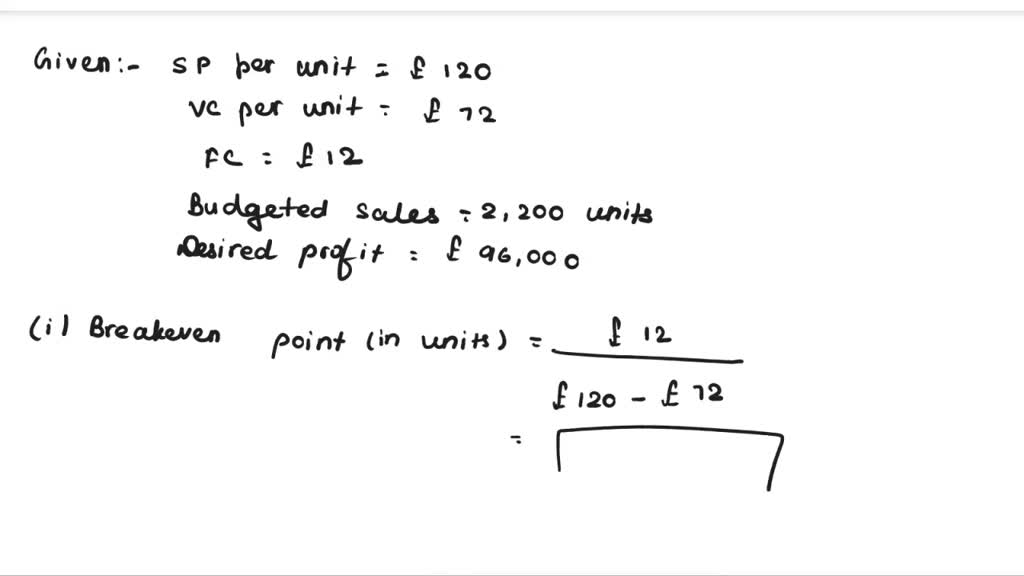 Given:- SP per unit = £ 120
VC per unit = £ 72
FC = £ 12
Budgeted sales = 2,200 units
Desired profit = £ 96,000
(i) Breakeven point (in units) = £ 12
£ 120 - £ 72
=